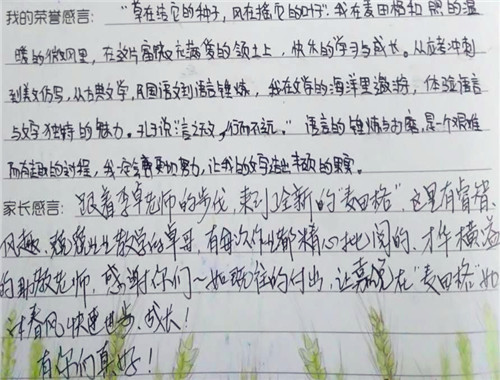 我的荣誉感言："草在结它的种子，风在摇它的叶子"。我在麦田格和煦的温
暖的微风里，在这片富饶充满爱的领土上，快乐的学习与成长。从应考冲刺
到美文仿写，从古典文学，民国语文到语言锤炼，我在文学的海洋里遨游，体验语言
与文字独特的魅力。孔子说"言之无文，行而不远。"语言的锤炼与打磨，是一个艰难
而有趣的过程，我一定会更加努力，让我的文字结出丰硕的果实。
家长感言：跟着李卓老师的步伐，来到了全新的"麦田格"，这里有睿智、
风趣、兢兢业业教学的卓哥，有每次作业都精心批阅的、才华横溢
的助教老师，感谢你们一如既往的付出，让嘉悦在"麦田格"如
沐春风，快速进步、成长！
有你们真好！